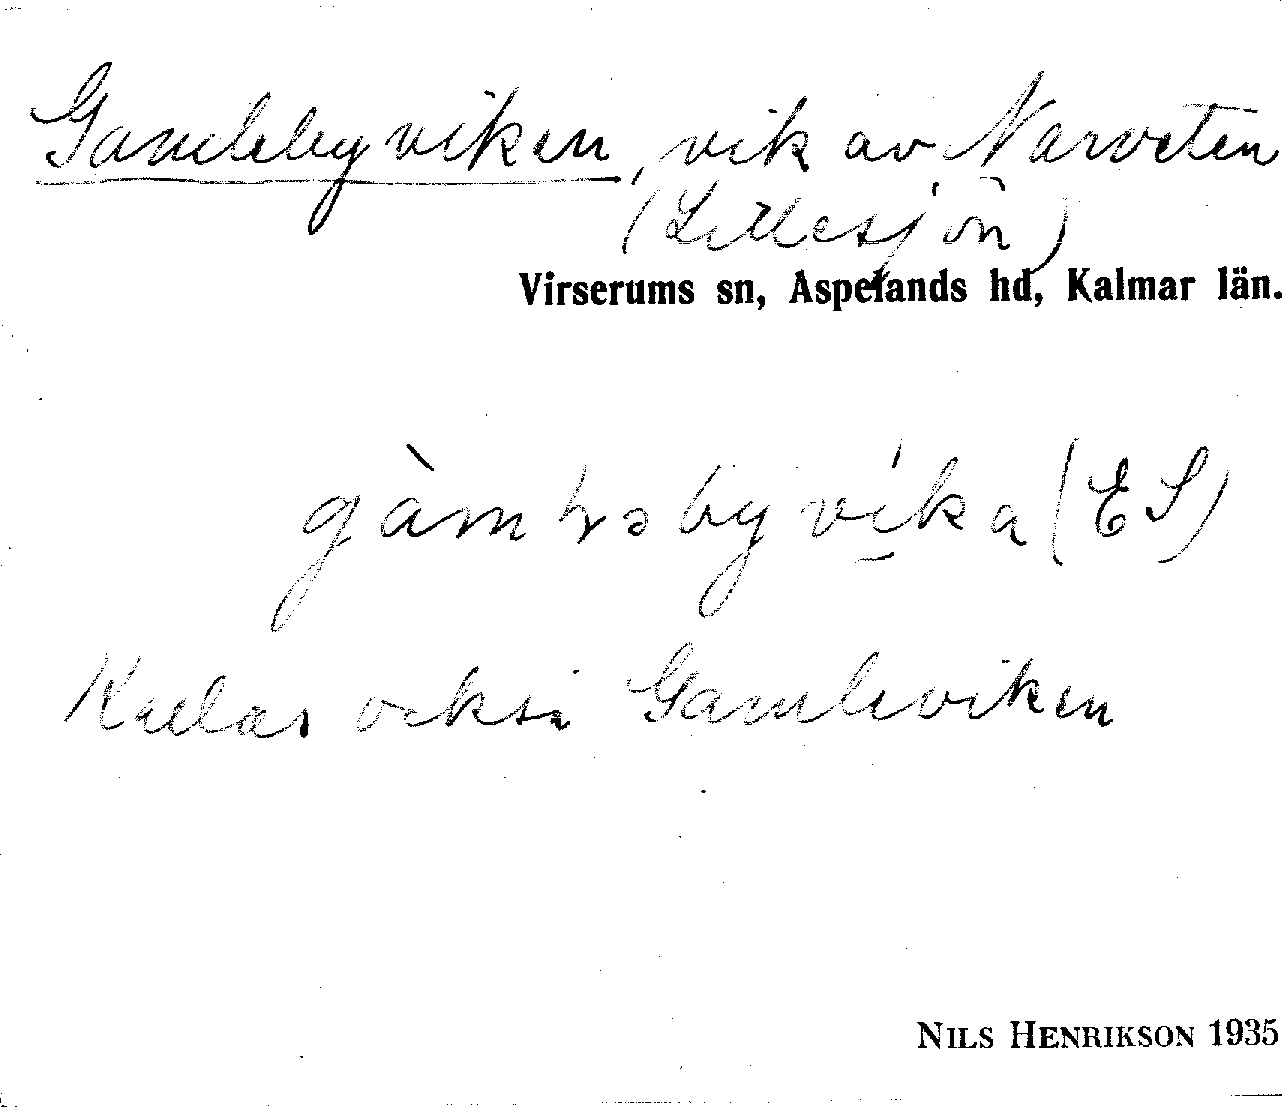 Gamlebyviken, vik av Narveten
(Lillesjön)
Virserums sn, Aspelands hd, Kalmar län.
gàmləbyvíka (ES)
Kallas också Gamleviken
NILS HENRIKSON 1935